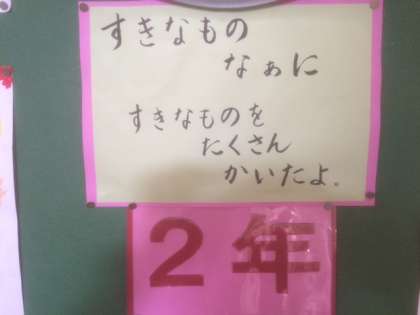 すきなもの
なぁに
すきなものを
たくさん
かいたよ.
２年